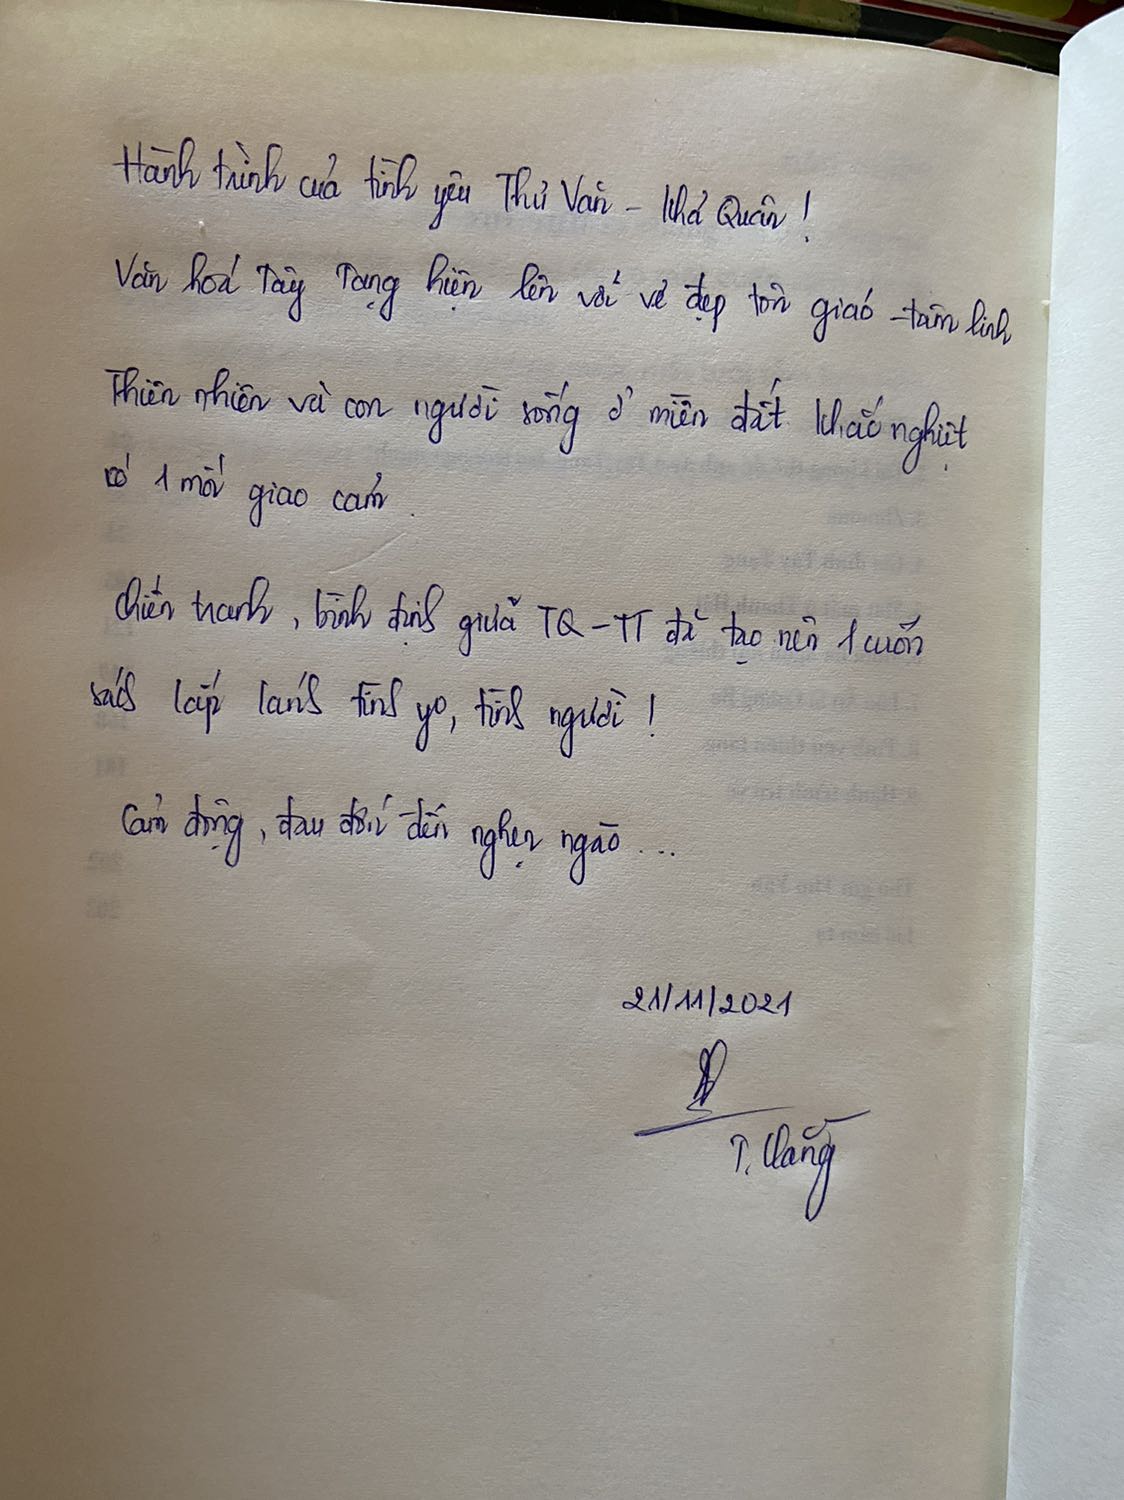 Hành trình của tình yêu Thư Văn - Khả Quân!
Văn hoá Tây Tạng hiện lên với vẻ đẹp tôn giáo - tâm linh
Thiên nhiên và con người sống ở miền đất khắc nghiệt
có 1 mối giao cảm.
Chiến tranh, bình định giữa TQ - TT đã tạo nên 1 cuốn
sách lấp lánh tình yo, tình người!
Cảm động, đau đớn đến nghẹn ngào...
21/11/2021